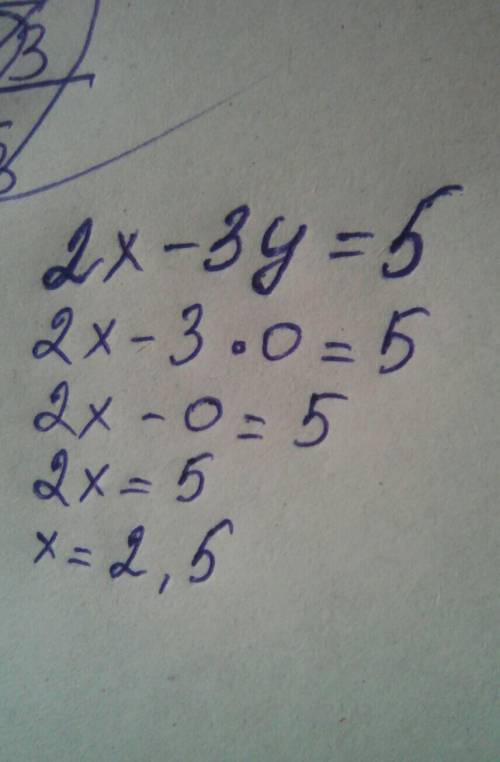 В
2x - 3y = 5
2x - 3 · 0 = 5
2x - 0 = 5
2x = 5
x = 2,5